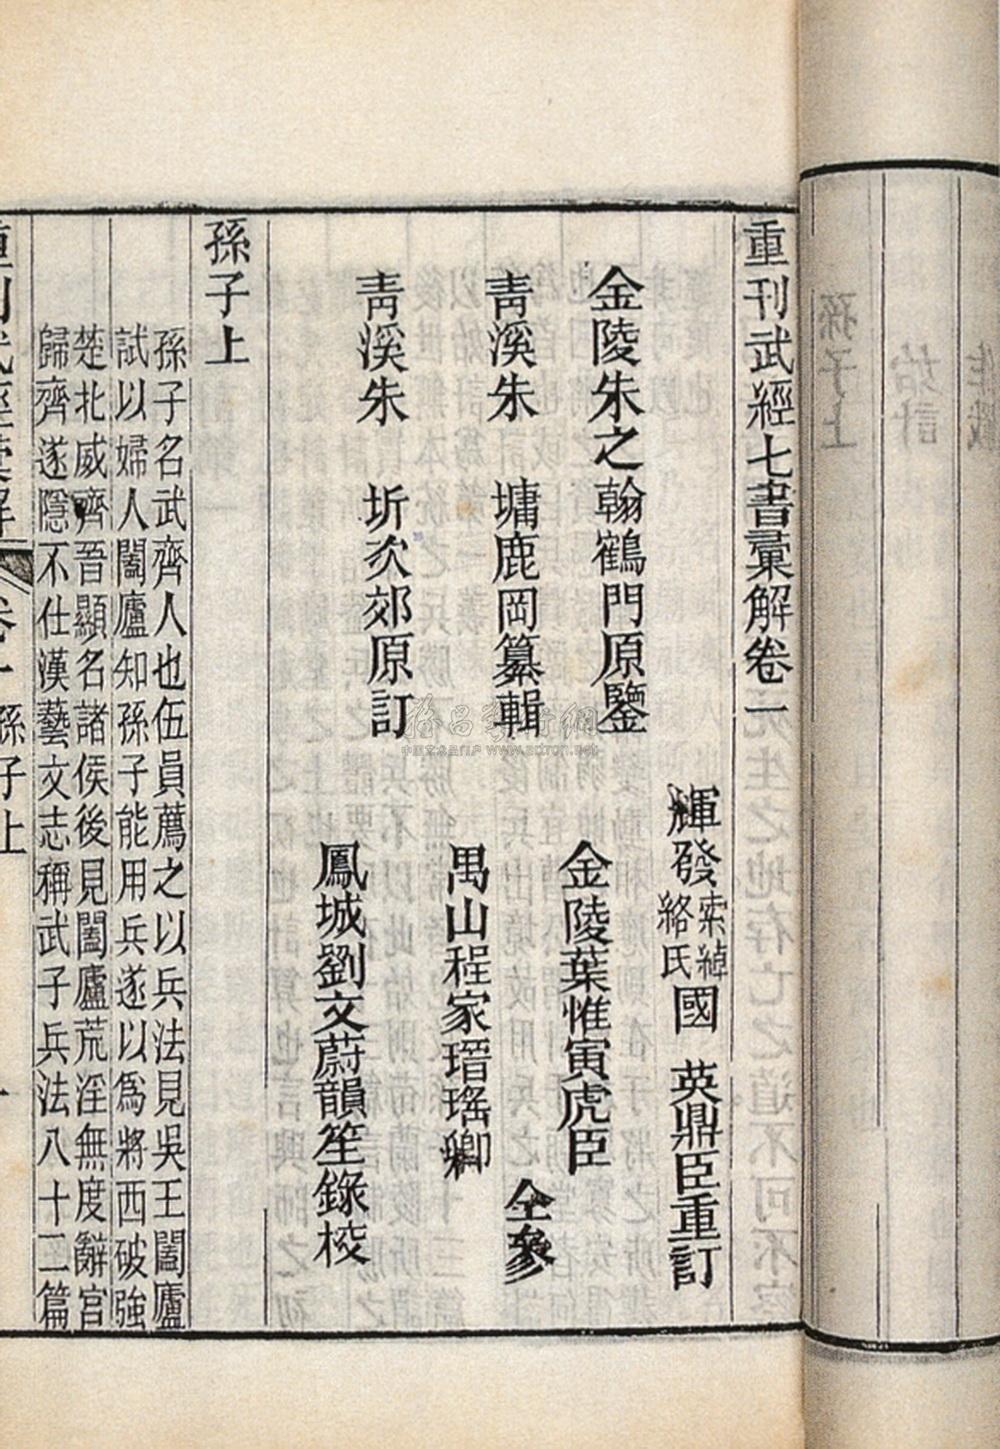 重刊武經七書彙解卷一
金陵朱之翰鶴門原鑒
靑溪朱 墉鹿岡纂輯
靑溪朱 圻次郊原訂
輝發索綽絡氏國 英鼎臣重訂
金陵葉惟寅虎臣
禺山程家瑨瑤卿
鳳城劉文蔚韻笙錄校
仝參
孫子上
孫子名武齊人也伍員薦之以兵法見吳王闔廬
試以婦人闔廬知孫子能用兵遂以爲將西破強
楚北威齊晉顯名諸侯後見闔廬荒淫無度辭官
歸齊遂隱不仕漢藝文志稱武子兵法八十二篇
重刊武經彙解 卷一 孫子上 一